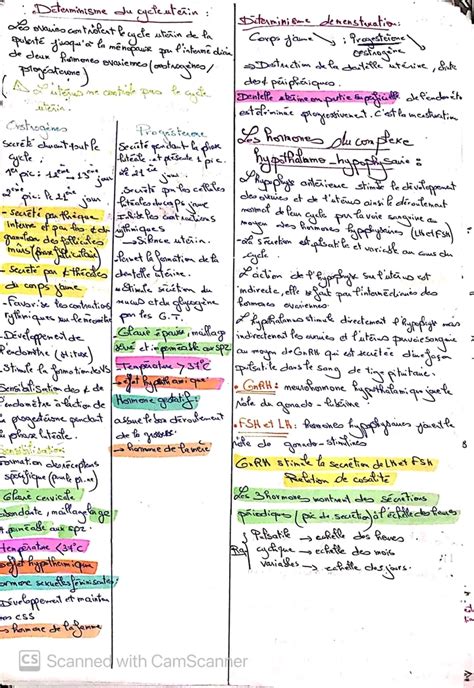 Déterminisme du cycle utérin :
Les ovaires contrôlent le cycle utérin de la
puberté jusqu'à la ménopause par l'intermédiaire
de deux hormones ovariennes (œstrogènes /
progéstérone)
utérus ne contrôle pas le cycle
utérin.
Œstrogènes
Secrété durant tout le
cycle :
1er pic : jour
2ème pic : jour
- secrété par thèque
interne et par les
des follicules
- secrété par thécales
de corps jaune
- Favorise les contractions
rythmiques
- Développement de
l'endomètre
- Stimule la formation de
Sensibilisation des de
l'endomètre à l'action de
la progéstérone pendant
la phase lutéale.
Sensibilisation :
Formation des récepteurs
spécifiques
Glaire cervicale
abondante, maillage large
et perméable aux spz
température < 37°C
effet hypothermique
hormone sexuelle féminisante
Développement et maintien
des CSS
→ hormone de la femme
Progéstérone
Secrété pendant la phase
lutéale et présente 1 pic.
Le 21ème jour.
- Secrété par les cellules
lutéales du corps jaune
- Inhibe les contractions
rythmiques
→ Silence utérin.
- permet la formation de la
dentelle utérine.
- Stimule sécrétion du
mucus et de glycogène
par les G.T.
Glaire épaisse, maillage
serré et imperméable au spz
Température > 37°C
- effet hyperthermique
Hormone gestatif :
assure le bon déroulement
de la grossesse.
→ hormone de la mère
Déterminisme de menstruation:
Corps jaune ↘ : Progéstérone
œstrogène
→ Destruction de la dentelle utérine,
des périphériques.
Dentelle utérine en partie superficielle de l'endomètre
est éliminée progressivement. C'est la menstruation
Les hormones du complexe
hypothalamo-hypophysaire :
L'hypophyse antérieure stimule le développement
des ovaires et de l'utérus ainsi le déroulement
normal de leur cycle par la voie sanguine au
moyen des hormones hypophysaires (LH et FSH)
La sécrétion est pulsatile et variable au cours du
cycle.
L'action de l'hypophyse sur l'utérus est
indirecte, elle se fait par l'intermédiaire des
hormones ovariennes.
L'hypothalamus stimule directement l'hypophyse mais
indirectement les ovaires et l'utérus par voie sanguine
au moyen de GnRH qui est secrétée d'une façon
pulsatile dans le sang de tige pituitaire.
• GnRH : neurohormone hypothalamique joue le
rôle du gonado-libérine.
• FSH et LH : hormones hypophysaires jouent le
rôle de gonado-stimulines
GnRH stimule la sécrétion de LH et FSH
Relation de causalité
Les 3 hormones montrent des sécrétions
périodiques (pic de sécrétion) à l'échelle des heures
Pulsatile → échelle des heures
cyclique → échelle des mois
variables → échelle des jours.
CS Scanned with CamScanner